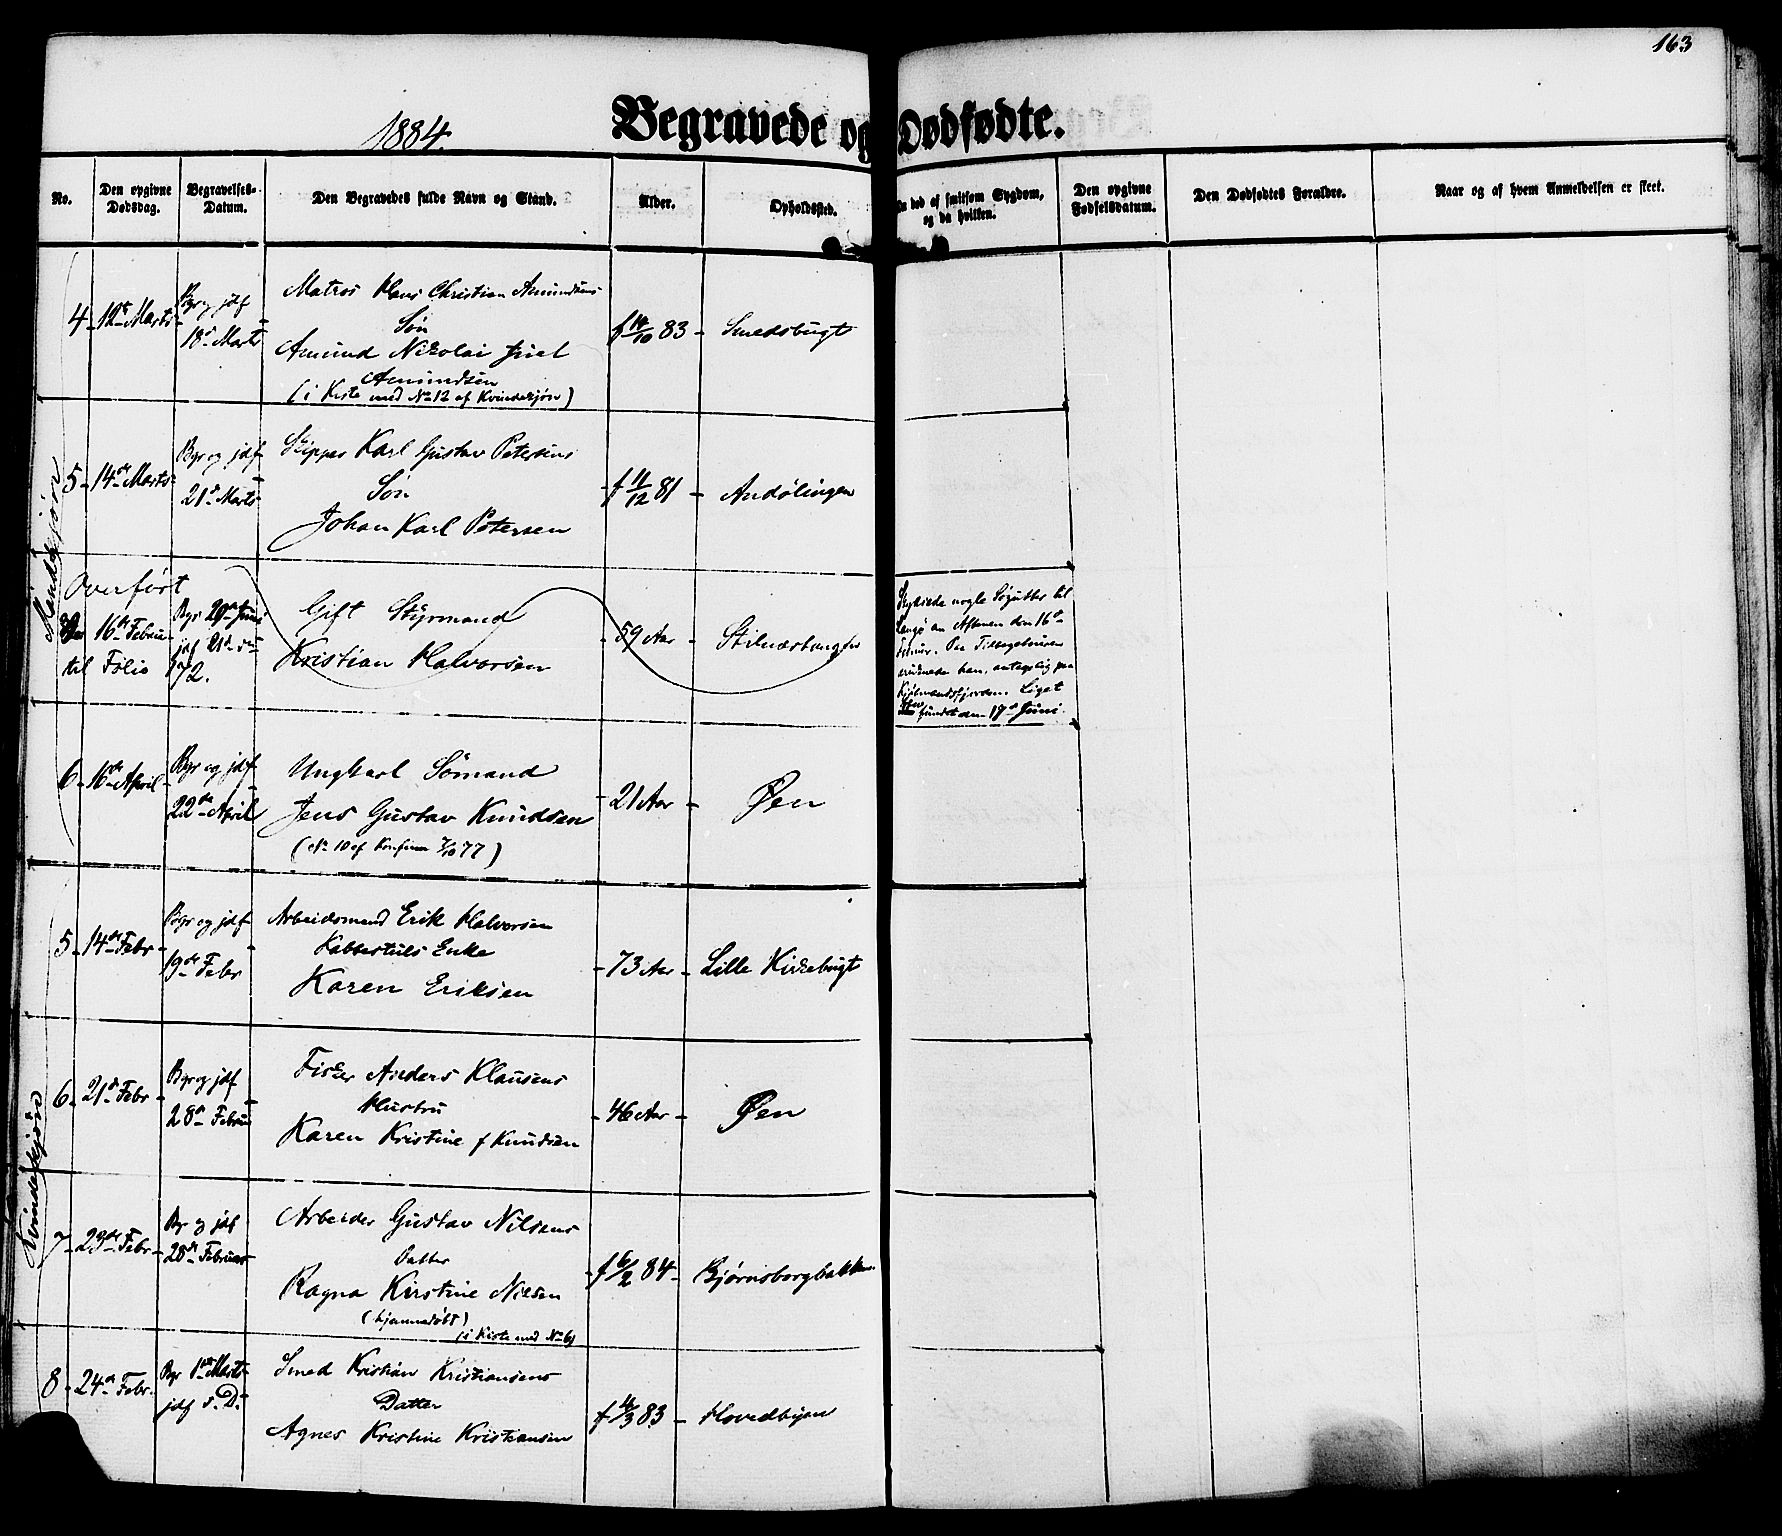 163
1884.
Begravede og Dødfødte.
No.
Den opgivne Dødsdag.
Begravelses-Datum.
Den Begravedes fulde Navn og Stand.
Alder.
Opholdssted.
død af smitsom Sygdom, og da hvilken.
Den opgivne Fødselsdatum.
Den Dødfødtes Forældre.
Naar og af hvem Anmeldelsen er skeet.
Mandkjøn
4 - 12te Marts -
Bgr og jdf
18de Marts
Matros Hans Christian Amundsens
Søn
Amund Nikolai Juel
Amundsen
(i Kiste med No 12 af Kvindekjøn)
f 14/10 83 -
Smedsbugt
5 - 14de Marts -
Bgr og jdf
21de Marts
Skipper Karl Gustav Petersens
Søn
Johan Karl Petersen
f 11/12 81 -
Andølingen
Overført
16de Februar
til Folio 172.
Bgr 20de Juni
jdf 21de
Gift Styrmand
Kristian Halvorsen
- 59 Aar -
nogle Søgutter til
Langø om Aftenen den 16de
Februar. Paa Tilbageturen
druknede han, antagelig paa
Kjølmandsfjorden. Liget
blev fundet den 19de Juni.
6 - 16de April -
Bgr og jdf
22de April
Ungkarl Sømand
Jens Gustav Knudsen
(No 10 af Konfirm 7/10 77)
- 21 Aar -
Øen
Kvindekjøn
5 - 14de Febr -
Bgr og jdf
19de Febr
Arbeidsmand Erik Halvorsen
Kabbestuls Enke
Karen Eriksen
- 73 Aar -
Lille Kirkebugt
6 - 21de Febr -
Bgr og jdf
28de Februar
Fisker Anders Klausens
Hustru
Karen Kristine f Knudsen
- 46 Aar -
Øen
7 - 23de Febr -
Bgr og jdf
28de Februar
Arbeider Gustav Nilsens
Datter
Ragna Kirstine Nilsen
(hjemmedøbt)
(i Kiste med No 6)
- f 6/2 84 -
Bjørnsborgbakken
8 - 24de Febr.
Bgr 1ste Marts
jdf s. D.
Smed Kristian Kristiansens
Datter
Agnes Kristine Kristiansen
f 4/3 83 -
Hovedbyen